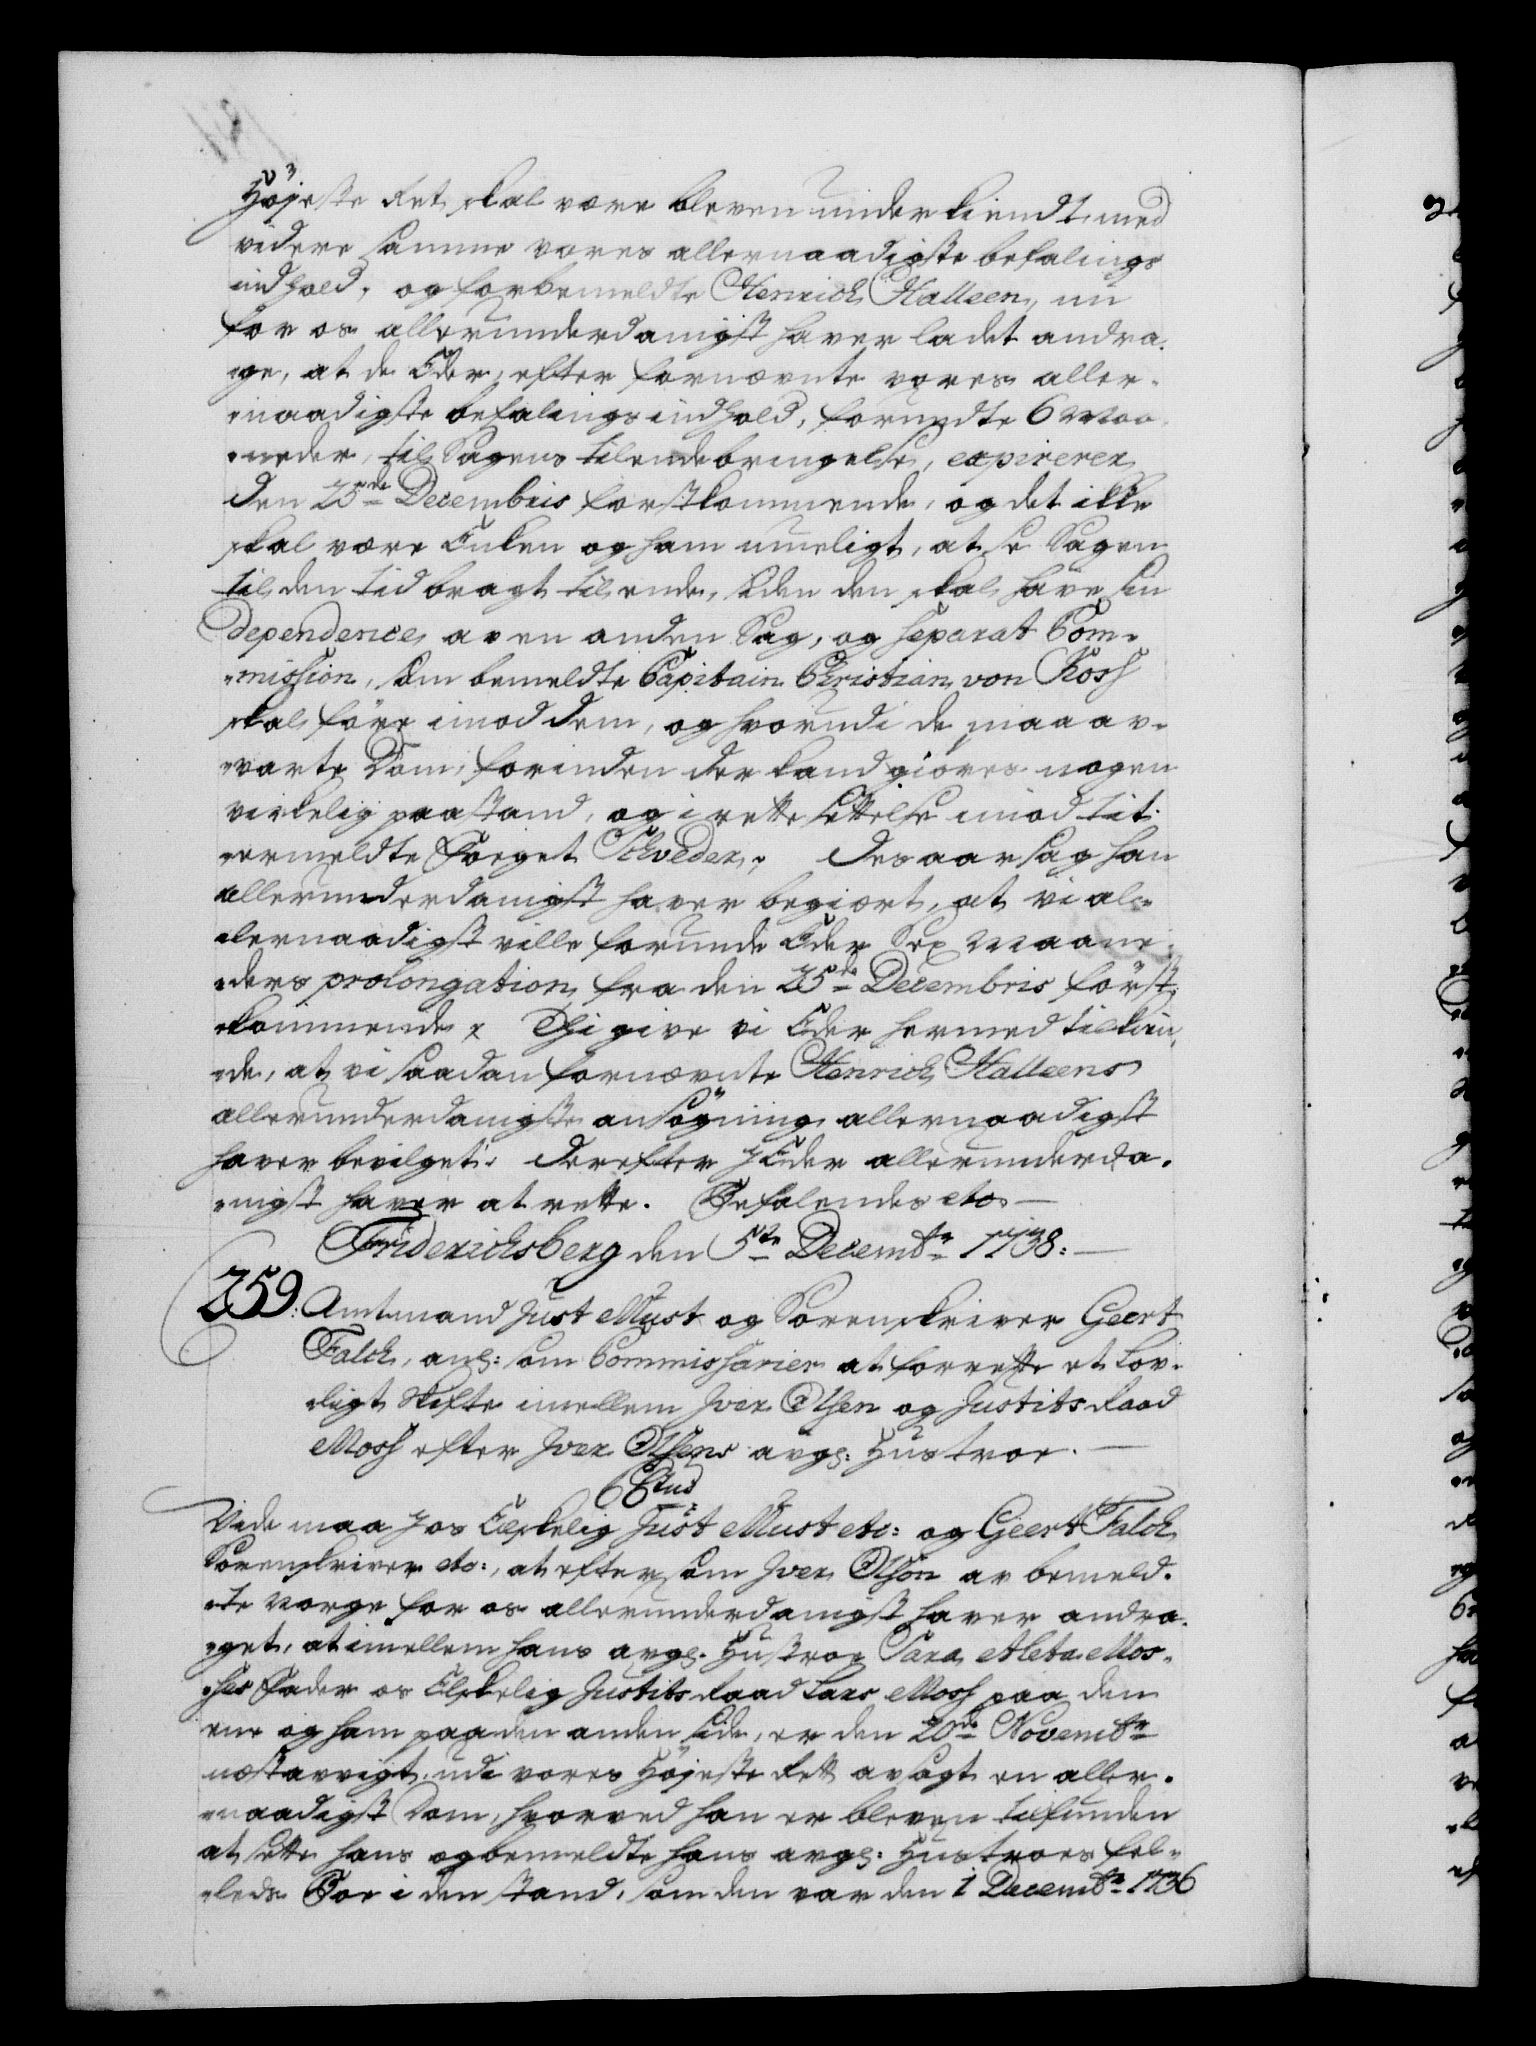 Højeste Ret skal være bleven underkiendt, med
videre samme vores allernaadigste befalings
indhold, og forbemeldte Henrich Halleen, nu
for os allerunderdanigst haver ladet andra-
ge, at de Eder, efter fornævnte vores aller-
naadigste befalings indhold, forundte 6 Maa-
neder, til Sagens tilendebringelse, expirerer
den 25de Decembris førstkommende, og det ikke
skal være Enken og ham mueligt, at se Sagen
til den tid bragt til ende, siden den skal have sin
dependence av en anden Sag, og separat Com-
mission, som bemeldte Capitain Christian von Koss
skal føre imod dem, og hvorudi de maa av-
varte Dom, forinden der kand giøres nogen
virkelig paastand, og i rette settelse imod tit-
ermeldte Sveder; des aarsag han
allerunderdanigst haver begiært, at vi al-
lernaadigst ville forunde Eder Sex Maane-
ders prolongation, fra den 25de Decembris først-
kommende, Thi give vi Eder hermed tilkien-
de, at vi saadan fornævnte Henrich Halleens
allerunderdanigste ansøgning allernaadigst
haver bevilget. Derefter I Eder allerunderda-
nigst haver at rette. Befalendes etc. —
Friderichsberg den 5te Decembr 1738: —
259. Amtmand Just Must og Sorenskriver Geert
Falch, ang: som Commissarier at forrette et Lov-
ligt Skifte imellem Iver Olsen og Justits Raad
Moss efter Iver Olsens avg: Hustroe. —
C6tus
Vide maa I os Elskelig Just Must etc: og Geert Falch
Sorenskriver etc:, at eftersom Iver Olson av bemeld-
te Norge for os allerunderdanigst haver andra-
get, at imellem hans avg: Hustroe Sara Aleta Mos-
ses Fader os Elskelig Justits Raad Lars Moss paa den
ene og ham paa den anden side, er den 20de Novembr
næstavvigt, udi vores Højeste Rett avsagt en aller-
naadigst Dom, hvorved han er bleven tilfunden
at sette hans og bemeldte hans avg: Hustroes fel-
leds Boe i den stand, som den var den 1 Decembr 1736